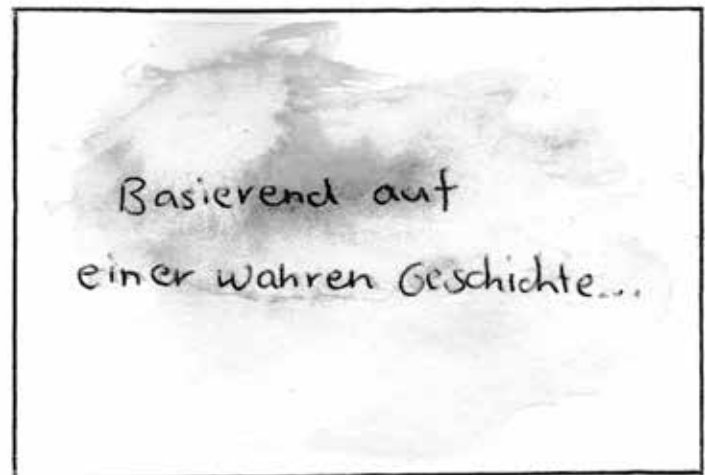 Basierend auf
einer wahren Geschichte...